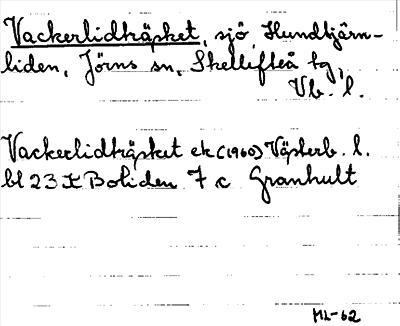 Vackerlidträsket, sjö, Hundtjärn-
liden, Jörns sn, Skellefteå tg,
Vb. l.
Vackerlidträsket ek (1960) Västerb. l.
bl 23 K Boliden 7 c Granhult
ML-62